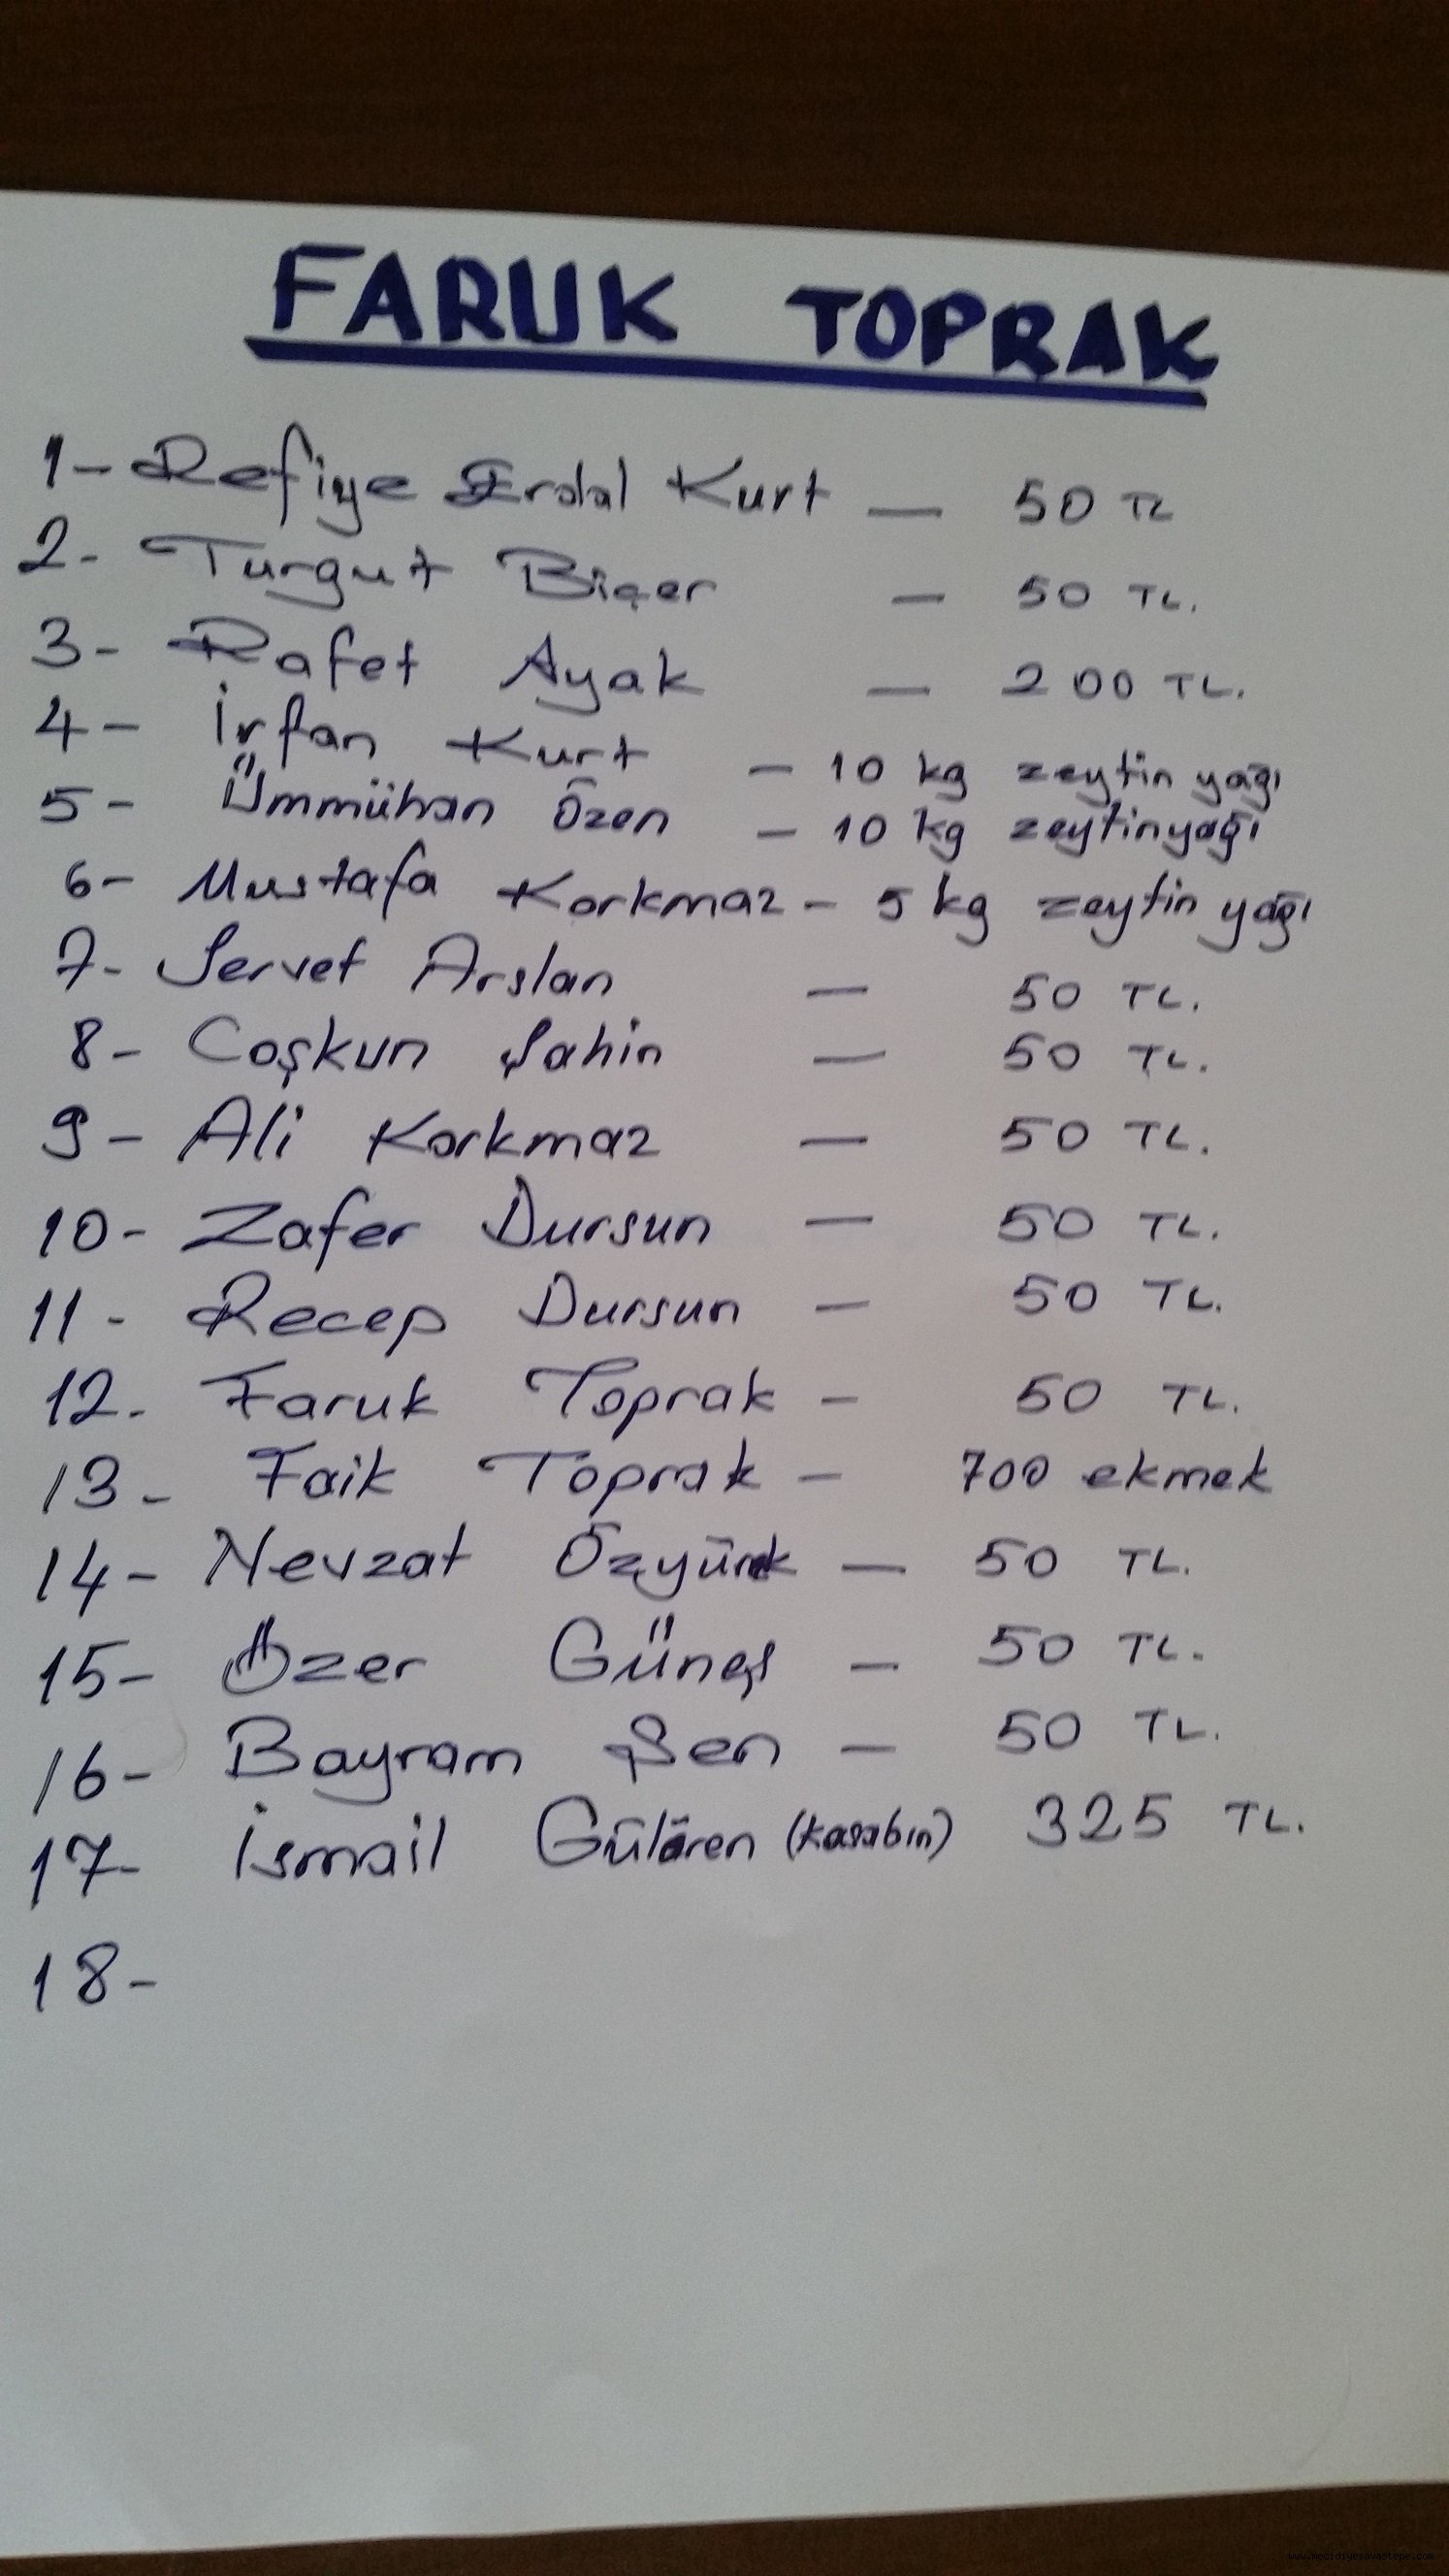 FARUK TOPRAK
1- Refiye Erdal Kurt — 50 TL
2- Turgut Biçer — 50 TL.
3- Rafet Ayak — 200 TL.
4- İrfan Kurt — 10 kg zeytin yağı
5- Ümmühan Özen — 10 kg zeytinyağı
6- Mustafa Korkmaz - 5 kg zeytin yağı
7- Servet Arslan — 50 TL.
8- Coşkun Şahin — 50 TL.
9- Ali Korkmaz — 50 TL.
10- Zafer Dursun — 50 TL.
11- Recep Dursun — 50 TL.
12- Faruk Toprak - 50 TL.
13- Faik Toprak - 700 ekmek
14- Nevzat Özyürek — 50 TL.
15- Özer Güneş — 50 TL.
16- Bayram Şen — 50 TL.
17- İsmail Gülören (kasabın) 325 TL.
18-
www.mecidiyesavastepe.com